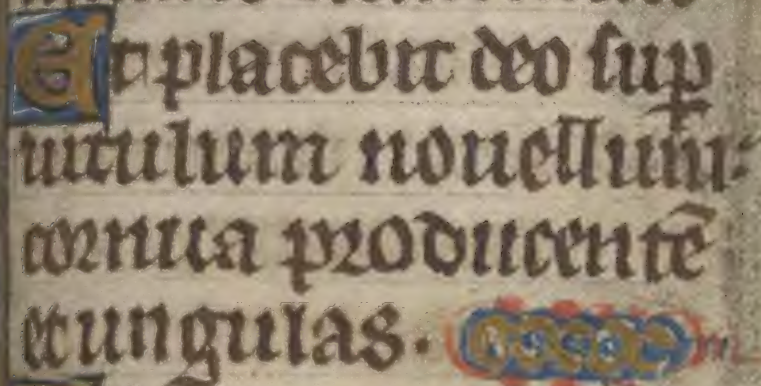 Et placebit deo sup
uitulum nouellum:
cornua producentē
et ungulas.